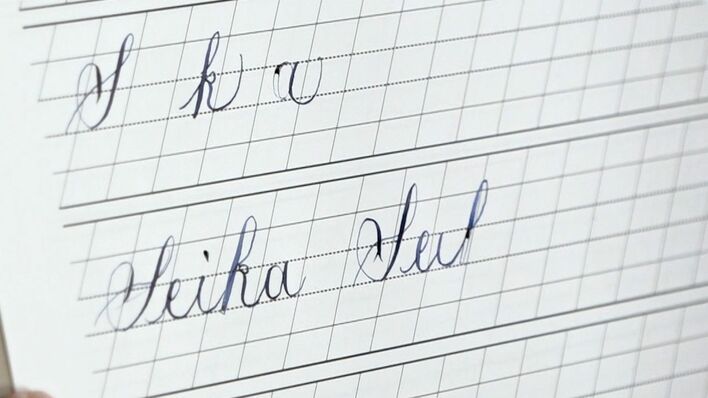 S k a
Seika Sei